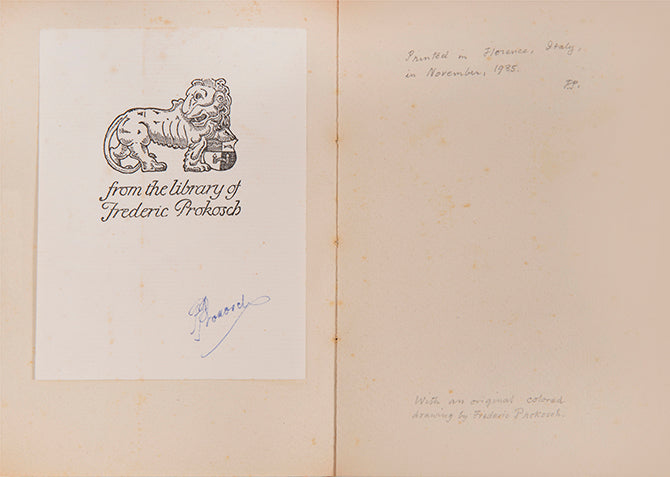 from the library of
Frederic Prokosch
FProkosch
Printed in Florence, Italy,
in November, 1935.
F.P.
With an original colored
drawing by Frederic Prokosch.